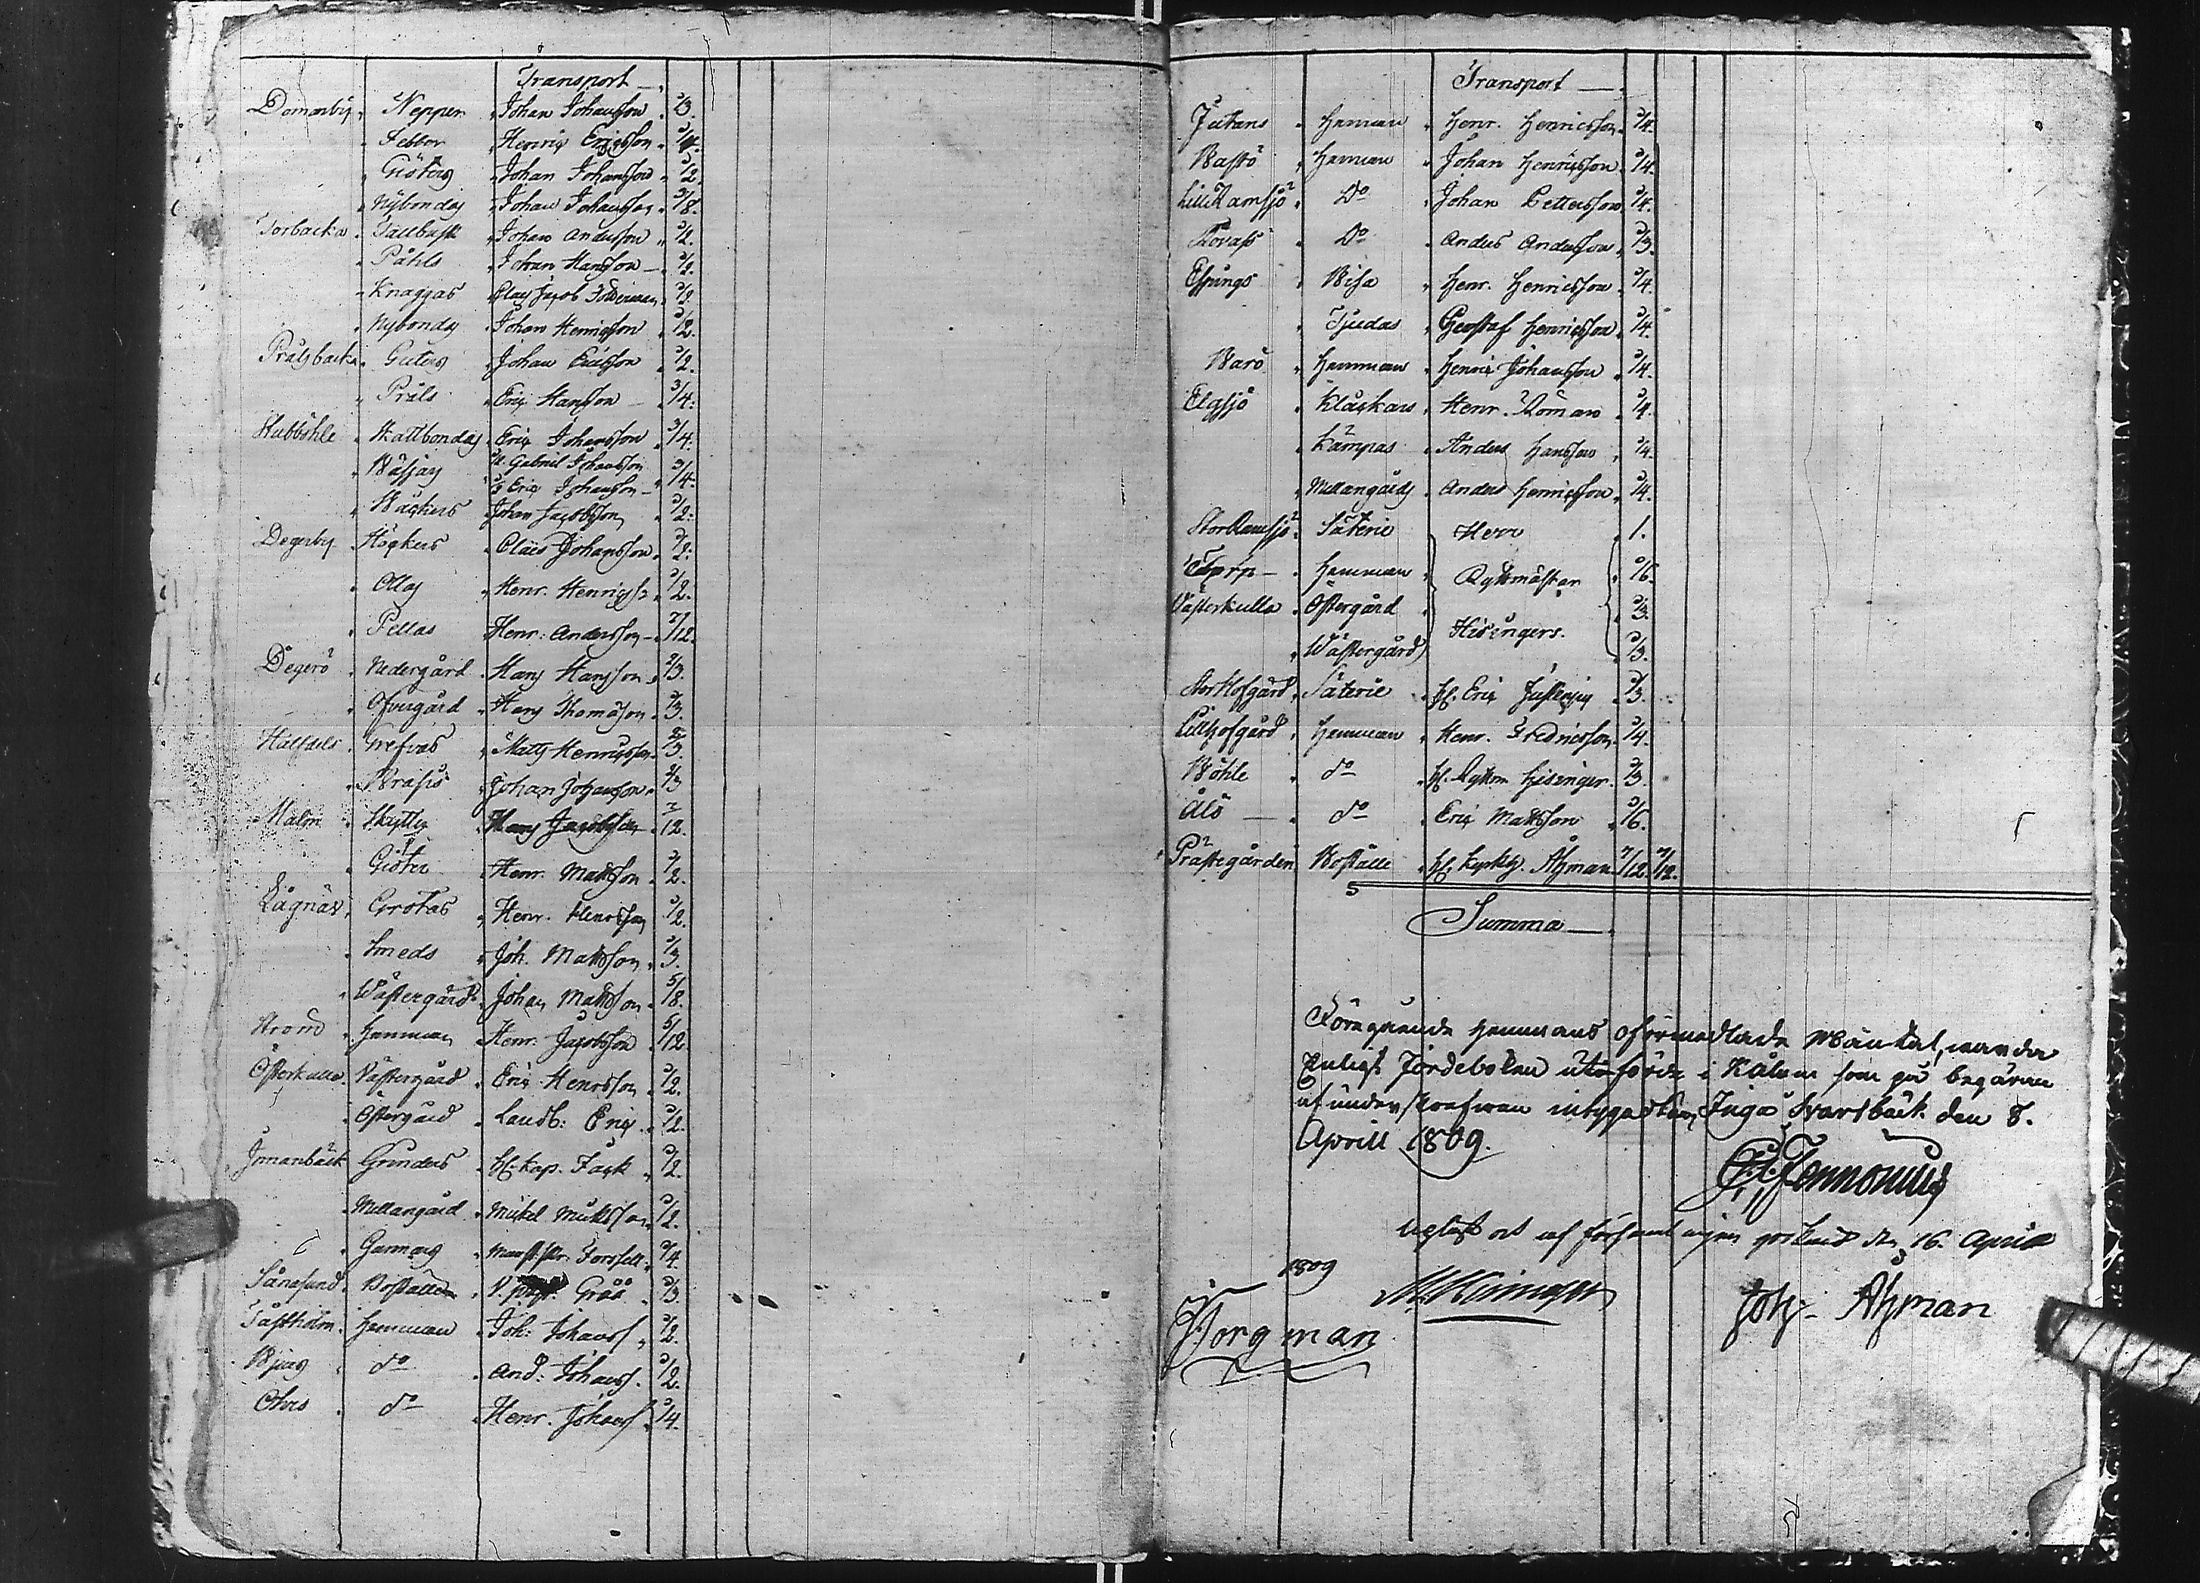 Transport
Domarby Nepper Johan Johansson 1/3.
Febbor Henric Ericsson 1/4.
Giöters Johan Johansson 1/2
Nybondas Johan Johansson 3/8.
Torbacka Tallbacka Johan Andersson 1/2.
Påhls Johan Hansson 1/2.
Knaggas Clas Jacob 1/2.
Nybondas Johan Henricsson 1/2.
Prälsbacka Guters Johan Ericsson 1/2.
Präls Eric Hansson 3/4.
Stubböhle Skattbondas Eric Johansson 3/4.
Wässjas Gabriel Johansson 3/4.
Eric Johansson
Wäskers Johan Jacobsson 1/2.
Degerby Höckers Claës Johansson 1/2.
Ollas Henr. Henricss: 1/2.
Pellas Henr: Andersson 7/12.
Degerö Nedergård Hans Hansson 2/3.
Öfvergård Hans Thomasson 2/3.
Halfdels Grefvas Matts Henricsson 2/3.
Brasas Johan Johansson 1/3
Malm Skytts Hans Jacobsson 7/12.
Giöter Henr. Mattsson 1/2.
Lågnäs Grotas Henr. Henrsson 1/2
Smeds Joh. Mattsson 1/3.
Wästergårds Johan Mattsson 5/8.
Strand Hemman Henr. Jacobsson 5/12
Österkulla Västergård Eric Henrsson 1/2.
Östergård Landb: Eric 1/2.
Innanbäck Grunders H. Kap. Fack 1/2.
Mellangård Mickel Mickelsson 1/2.
Garmans Forssell 1/4.
Bostället Gröö 1/3.
Tästholm Hemman Joh: Johanss 1/2.
Bjers do And: Johanss. 1/2.
Ohrs do Henr. Johanss 1/4.
Transport
Jutans Hemman Henr. Henricsson 1/4.
Bastö Hemman Johan Henricsson 1/4.
Lill Ramsjö Do Johan Pettersson 1/4.
Rövass Do Anders Andersson 1/3.
Espings Bisa Henr. Henricsson 1/4.
Tjudas Gustaf Henricsson 1/4.
Barö Hemman Henric Johansson 1/4.
Elgsjö Klåckars Henr. Roman 1/4.
Kämpas Anders Hansson 1/4.
Mellangårds Anders Henricsson 1/4.
Stor Ramsjö Säterie Herr 1.
Torp Hemman Ryttmästar 1/6.
Västerkulla Östergård 1/3.
Hisingers.
Wästergård 1/3.
Stor Hofgård Säterie H. Eric Justenius 1/3.
Lill Hofgård Hemman Henr. Fredricsson 1/4.
Böhle do H. Ryttm Hisinger 1/3.
Älö do Eric Mattsson 1/6.
Prästegården Boställe H. Kyrkh. Åhman 7/12. 7/12.
Summa
Föregående Hemmans oförmedlade Mantal, warda
Enligt Jordeboken utförde i Kålum som på begäran
af underskrefwen intygas Ingå Svartbäck den 8.
April 1809.
Fennonius
Upläst och af församlingen godkänd den 16. April
1809
Joh. Åhman
Borgman